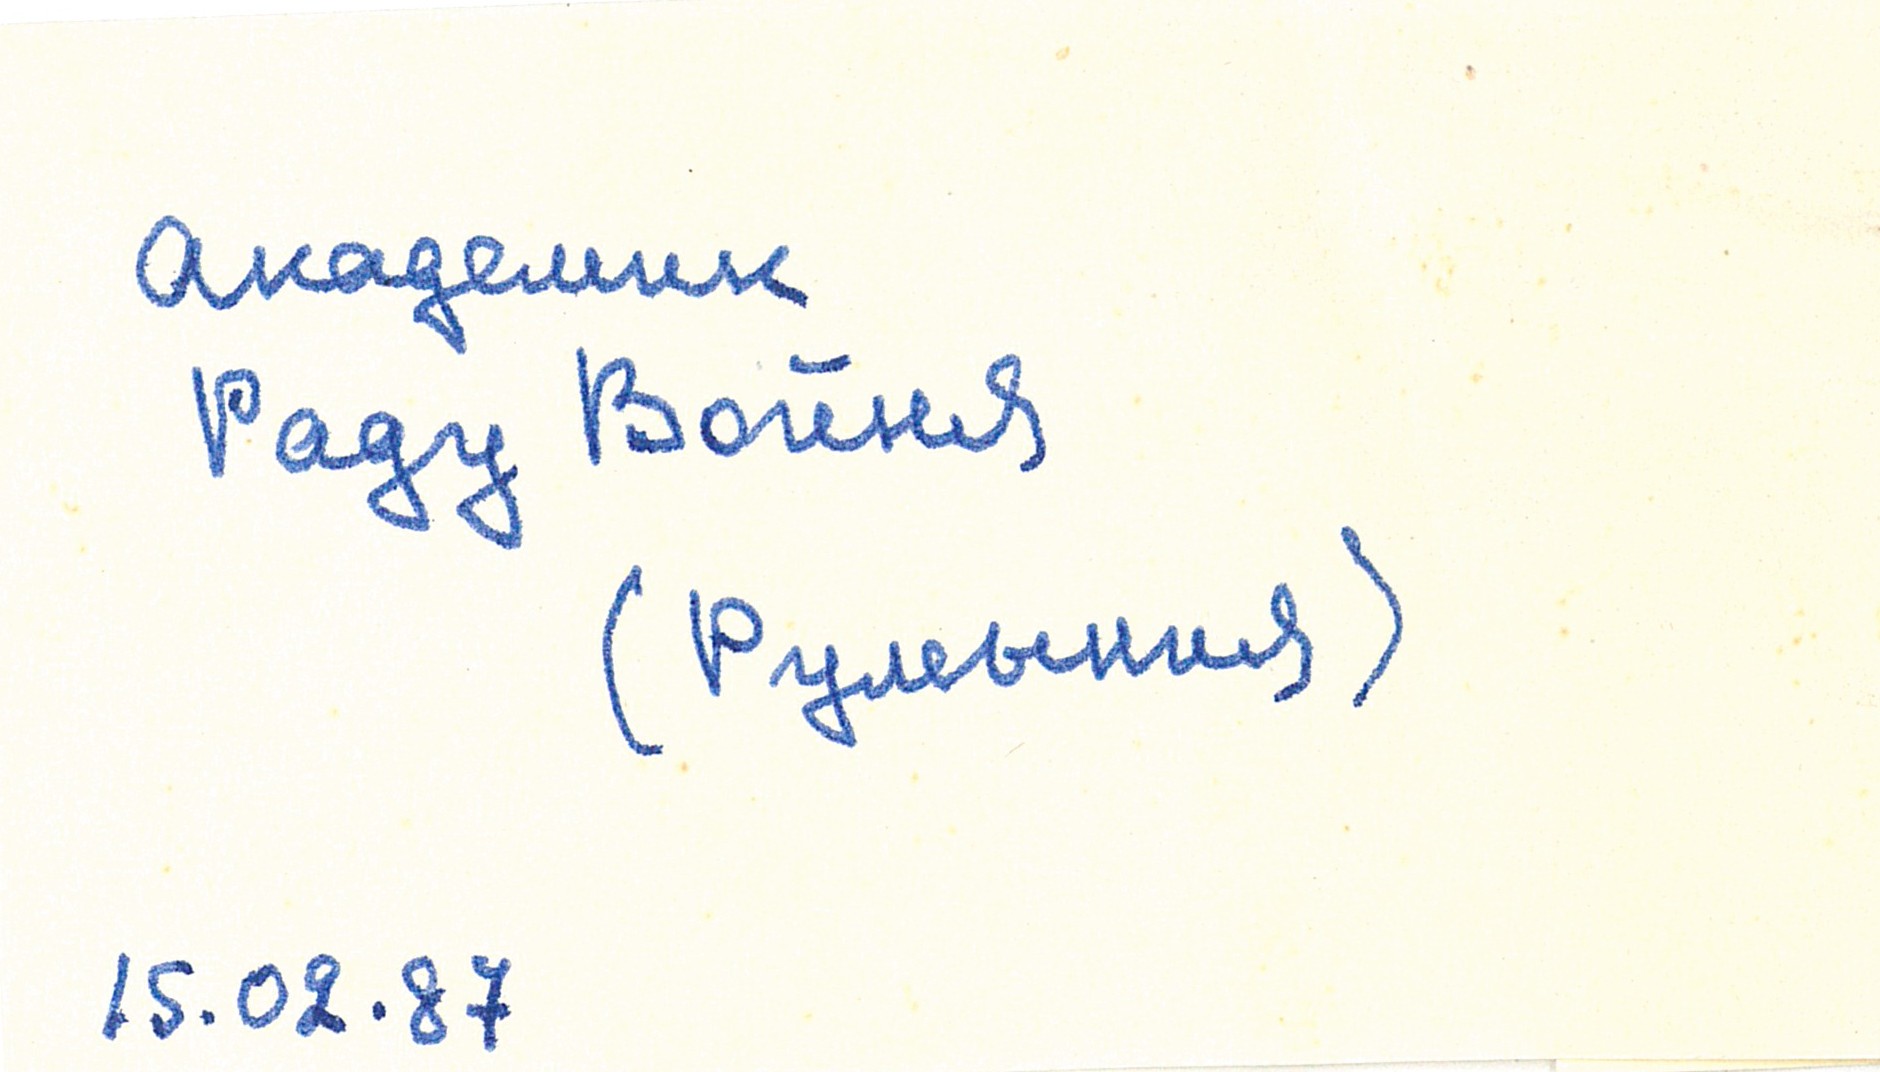 Академик
Раду Войня
(Румыния)
15.02.87